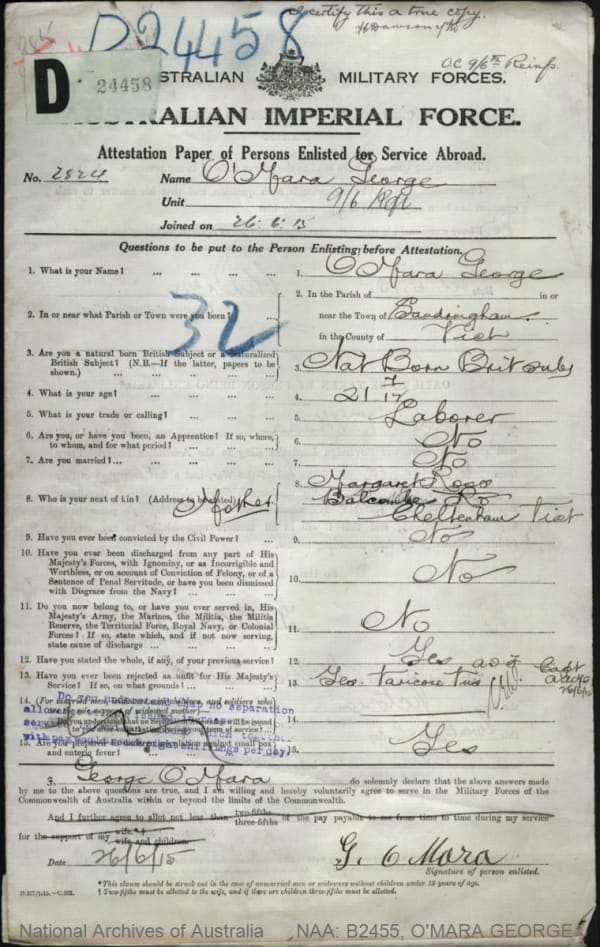 I certify this a true copy.
D24458
O.C. 9/6th Reinfs.
D 24458
AUSTRALIAN MILITARY FORCES.
AUSTRALIAN IMPERIAL FORCE.
Attestation Paper of Persons Enlisted for Service Abroad.
No. Name O'Mara George
Unit 9/6
Joined on 26.6.15
Questions to be put to the Person Enlisting before Attestation.
1. What is your Name? ... ... ... ... 1. O'Mara George
2. In or near what Parish or Town were you born? ... 2. In the Parish of in or
near the Town of Sandringham
in the County of Vict
32
3. Are you a natural born British Subject or a Naturalized
British Subject? (N.B.—If the latter, papers to be
shown.) ... ... ... ... 3. Nat Born Brit Subj
4. What is your age? ... ... ... ... 4. 21 7/12
5. What is your trade or calling? ... ... ... 5. Laborer
6. Are you, or have you been, an Apprentice? If so, where,
to whom, and for what period? ... ... ... 6. No
7. Are you married? ... ... ... ... 7. No
8. Who is your next of kin? (Address to be stated) Mother 8. Margaret
Balcombe Rd
Cheltenham Vict
9. Have you ever been convicted by the Civil Power? ... 9. No
10. Have you ever been discharged from any part of His
Majesty's Forces, with Ignominy, or as Incorrigible and
Worthless, or on account of Conviction of Felony, or of a
Sentence of Penal Servitude, or have you been dismissed
with Disgrace from the Navy? ... ... ... 10. No
11. Do you now belong to, or have you ever served in, His
Majesty's Army, the Marines, the Militia, the Militia
Reserve, the Territorial Force, Royal Navy, or Colonial
Forces? If so, state which, and if not now serving,
state cause of discharge ... ... ... 11. No
12. Have you stated the whole, if any, of your previous service? 12. Yes
13. Have you ever been rejected as unfit for His Majesty's
Service? If so, on what grounds? ... ... 13. Yes
26/6/15
14.
Do you understand that no separation
15. Are you prepared to undergo inoculation against small pox
and enteric fever? ... ... ... 15. Yes
I, George O'Mara do solemnly declare that the above answers made
by me to the above questions are true, and I am willing and hereby voluntarily agree to serve in the Military Forces of the
Commonwealth of Australia within or beyond the limits of the Commonwealth.
And I further agree to allot not less than two-fifths three-fifths of the pay payable to me from time to time during my service
for the support of my wife.*† wife and children.
Date 26/6/15 G. O'Mara
Signature of person enlisted.
*This clause should be struck out in the case of unmarried men or widowers without children under 18 years of age.
† Two-fifths must be allotted to the wife, and if there are children three-fifths must be allotted.
National Archives of Australia NAA: B2455, O'MARA GEORGE